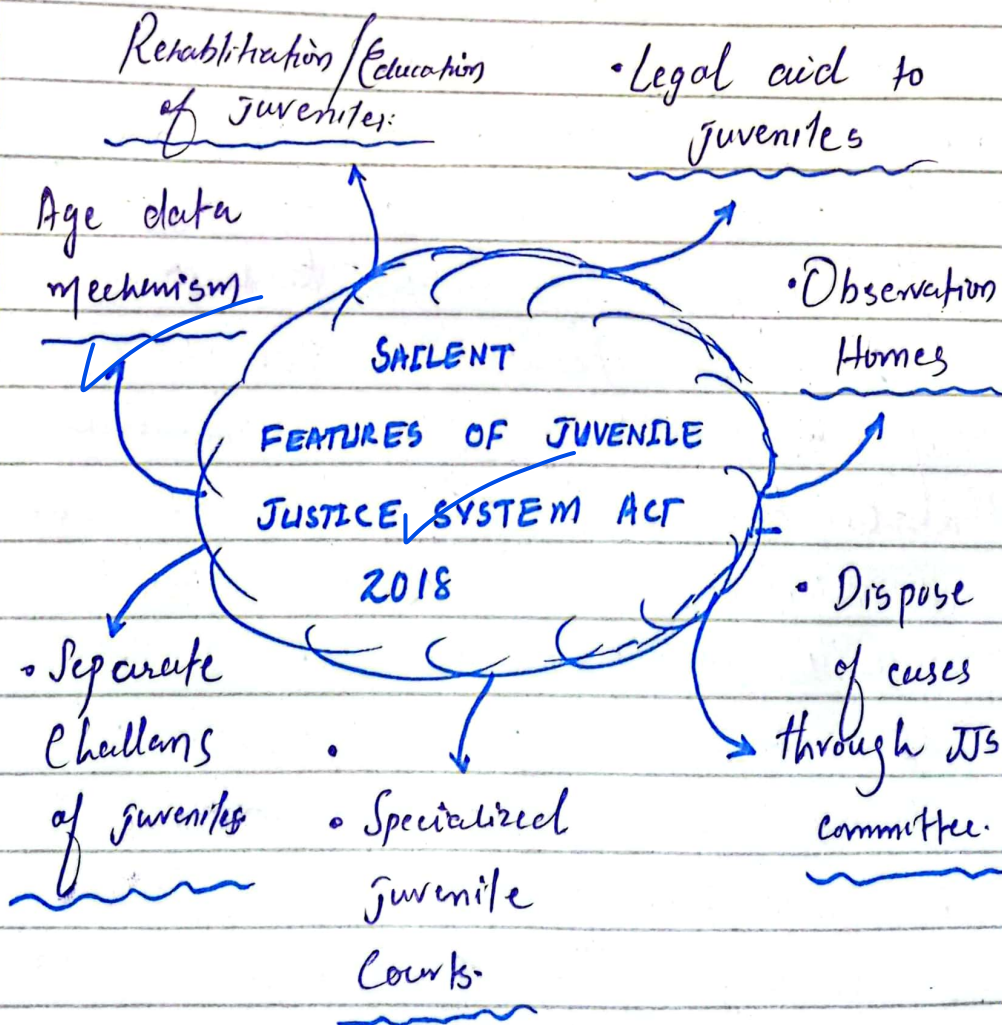 Rehablitation/Education
of juveniles:
• Legal aid to
juveniles
Age data
mechenism
• Observation
Homes
SAILENT
FEATURES OF JUVENILE
JUSTICE SYSTEM ACT
2018
• Dispose
of cases
through JJS
committee.
• Separate
Challans
of juveniles
• Specialized
juvenile
Courts.